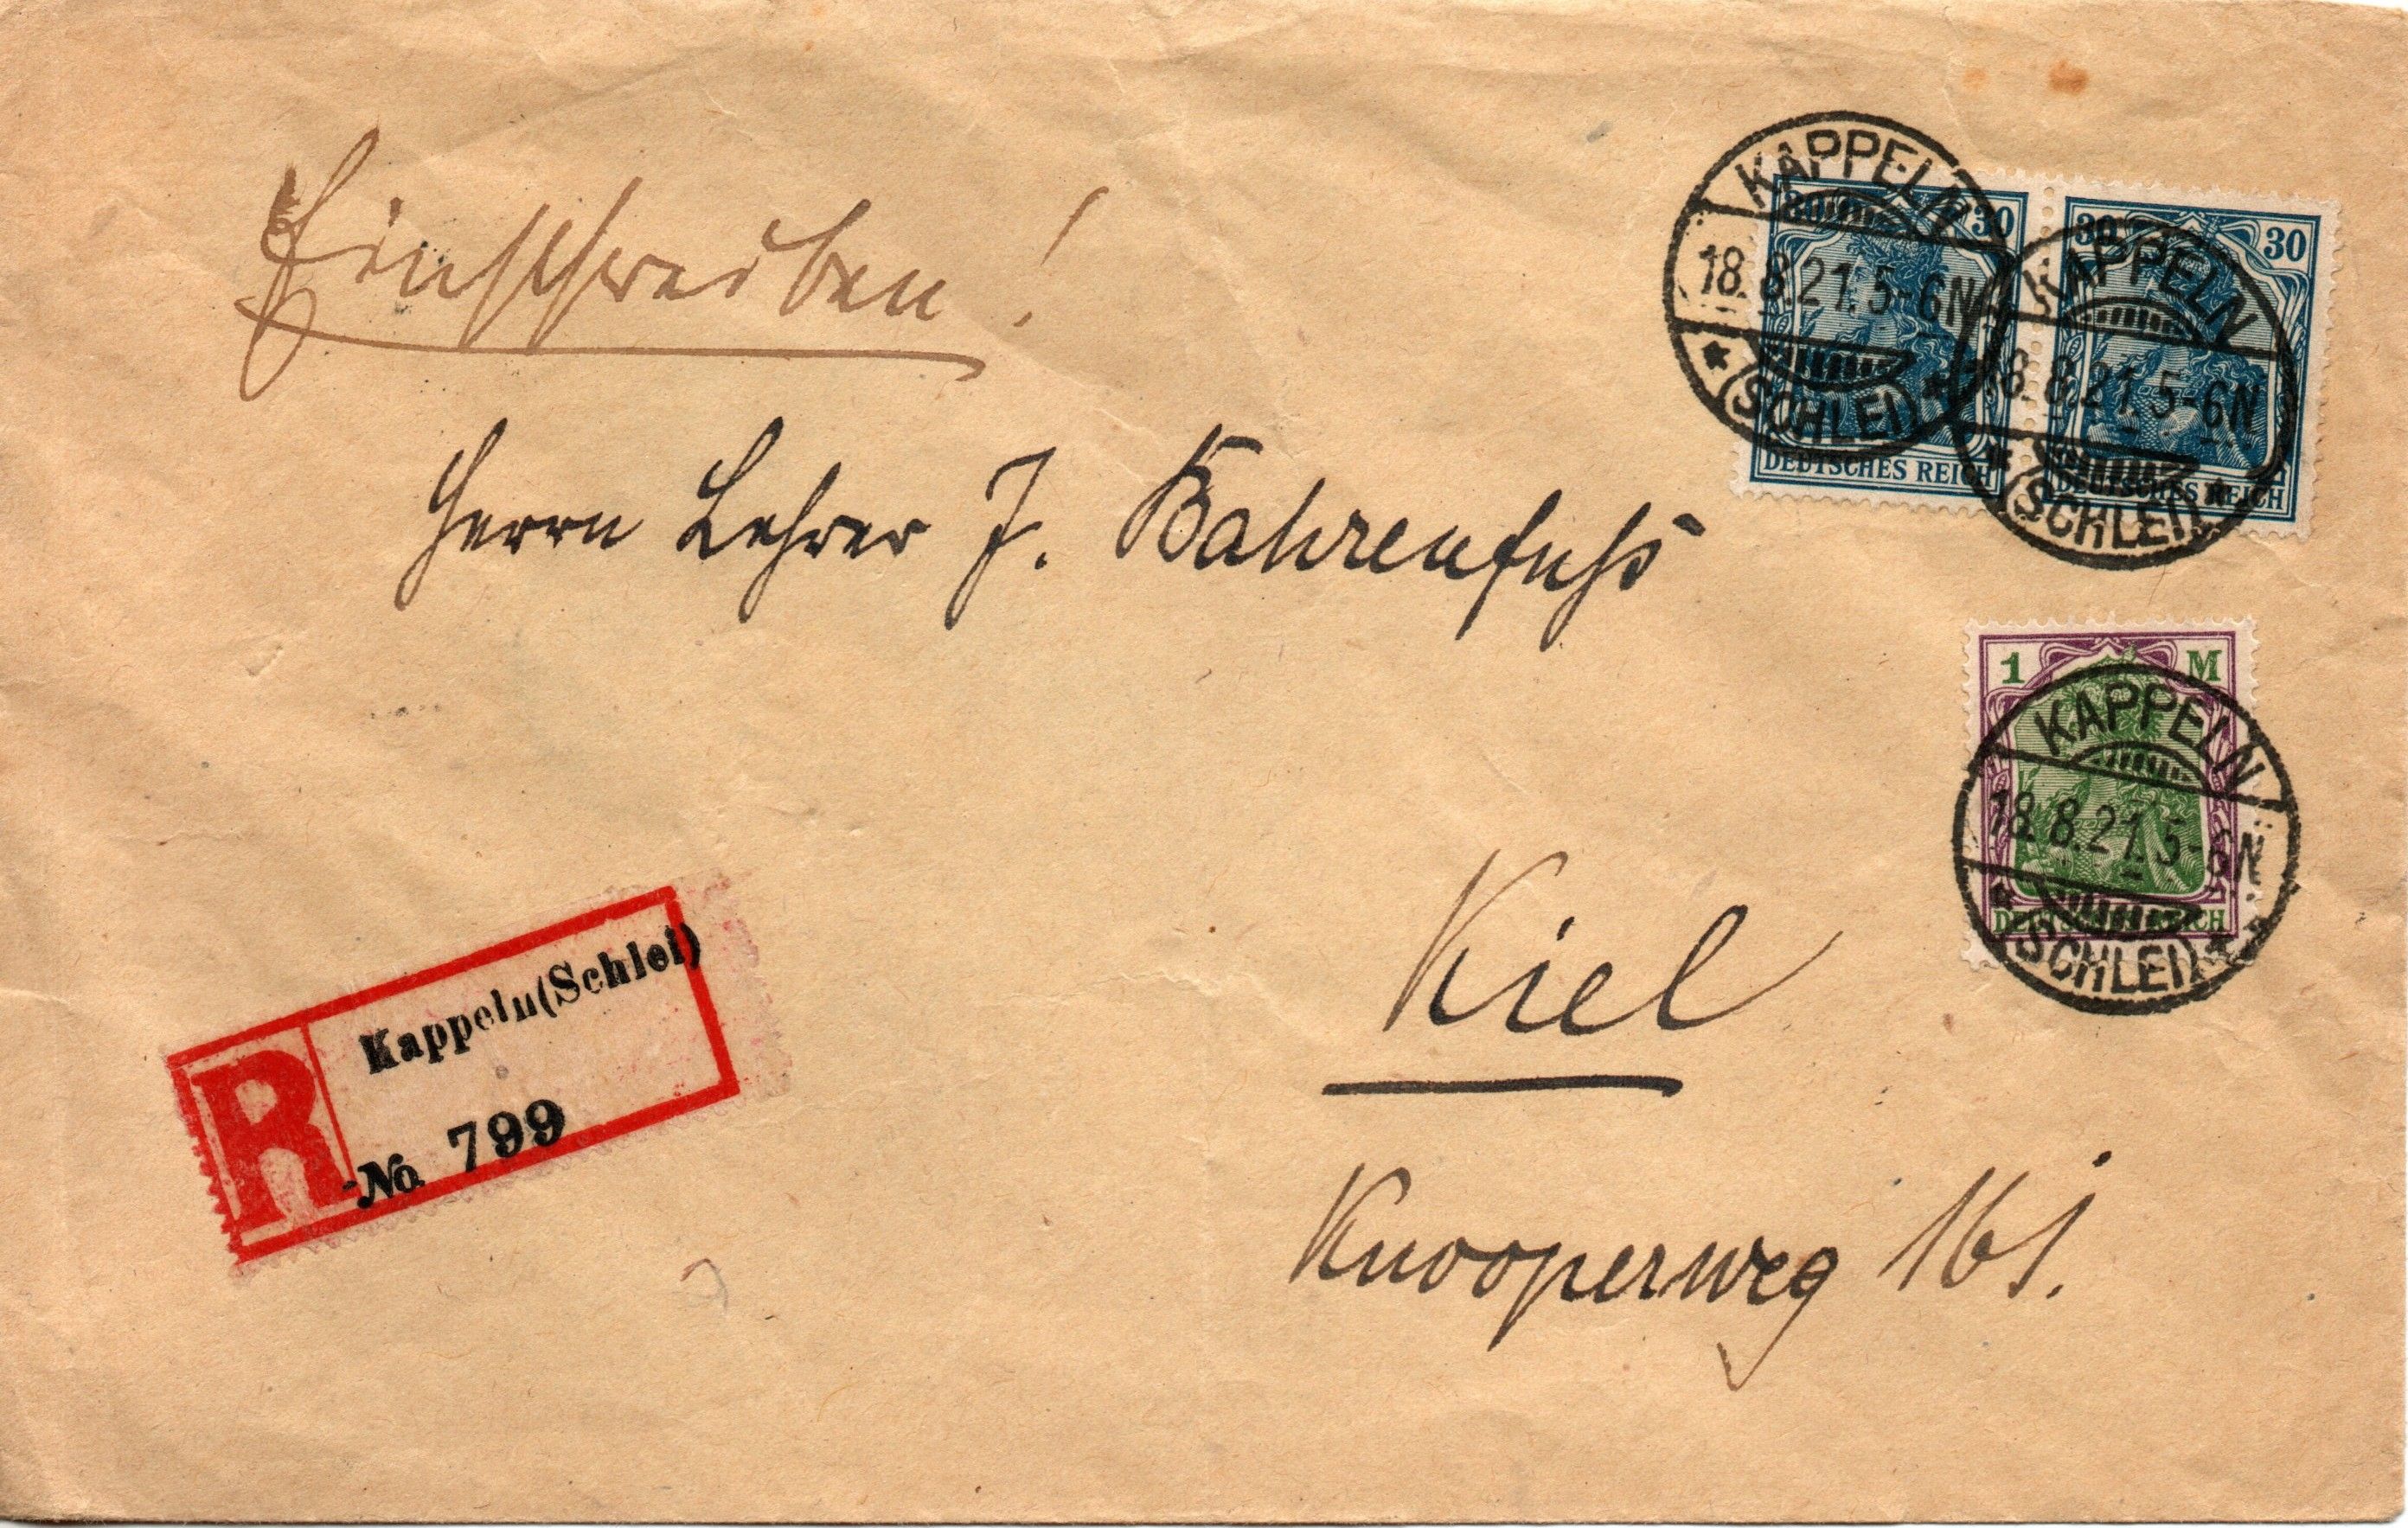 Einschreiben!
30 30
30 30
KAPPELN
18.8.21.5-6N
* (SCHLEI) *
DEUTSCHES REICH
KAPPELN
18.8.21.5-6N
* (SCHLEI) *
DEUTSCHES REICH
Herrn Lehrer J. Bahrenfuss
1 M
KAPPELN
18.8.21.5-6N
DEUTSCHES REICH
* (SCHLEI) *
R
Kappeln(Schlei)
No. 799
Kiel
Knooperweg 161.